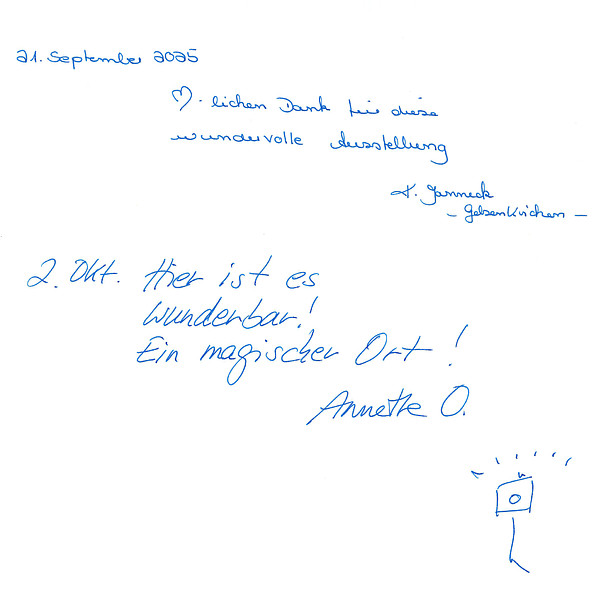 21. September 2025
♡.lichen Dank für diese
wundervolle Ausstellung
A. Janneck
- Gelsenkirchen -
2. Okt. Hier ist es
wunderbar!
Ein magischer Ort!
Annette O.